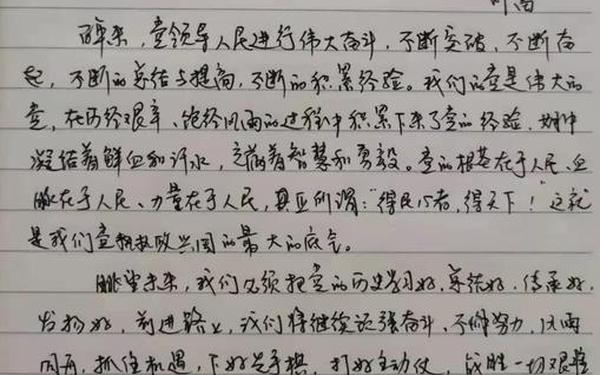 年来，党领导人民进行伟大奋斗，不断突破，不断奋
起，不断的总结与提高，不断的积累经验。我们的党是伟大的
党，在历经艰辛、饱经风雨的过程中积累下来了党的经验，其中
凝结着鲜血和汗水，充满着智慧和勇毅。党的根基在于人民、血
脉在于人民、力量在于人民，真正所谓："得民心者，得天下！"这就
是我们党执政兴国的最大的底气。
眺望未来，我们必须把党的历史学习好，总结好，传承好，
发扬好，前进路上，我们将继续顽强奋斗、不懈努力，风雨
同舟，抓住机遇，下好先手棋，打好主动仗，战胜一切艰难